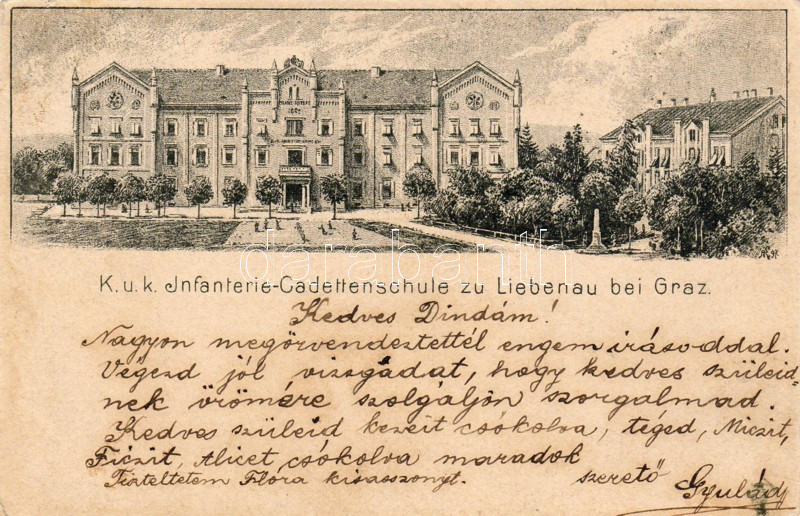 K.u.k. Infanterie-Cadettenschule zu Liebenau bei Graz.
darabanth
Kedves Dindám!
Nagyon megörvendeztettél engem irásoddal.
Végezd jól vizsgádat, hogy kedves szüleid-
nek örömére szolgáljon szorgalmad.
Kedves szüleid kezeit csókolva, téged, Miczit,
Ficzit, Alicet csókolva maradok
Tiszteltetem Flora kisasszonyt. szerető Gyulád